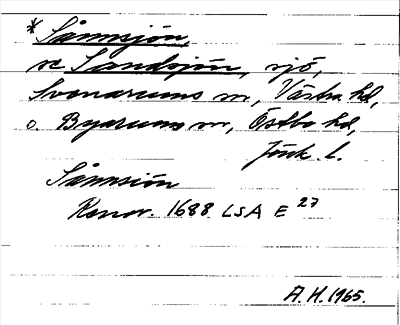 *Sännsjön,
se Sandsjön, sjö,
Svenarums sn, Västra hd,
o. Byarums sn, Östbo hd,
Jönk. l.
Sännsiön
Renov. 1688 LSA E 27
A.H. 1965.